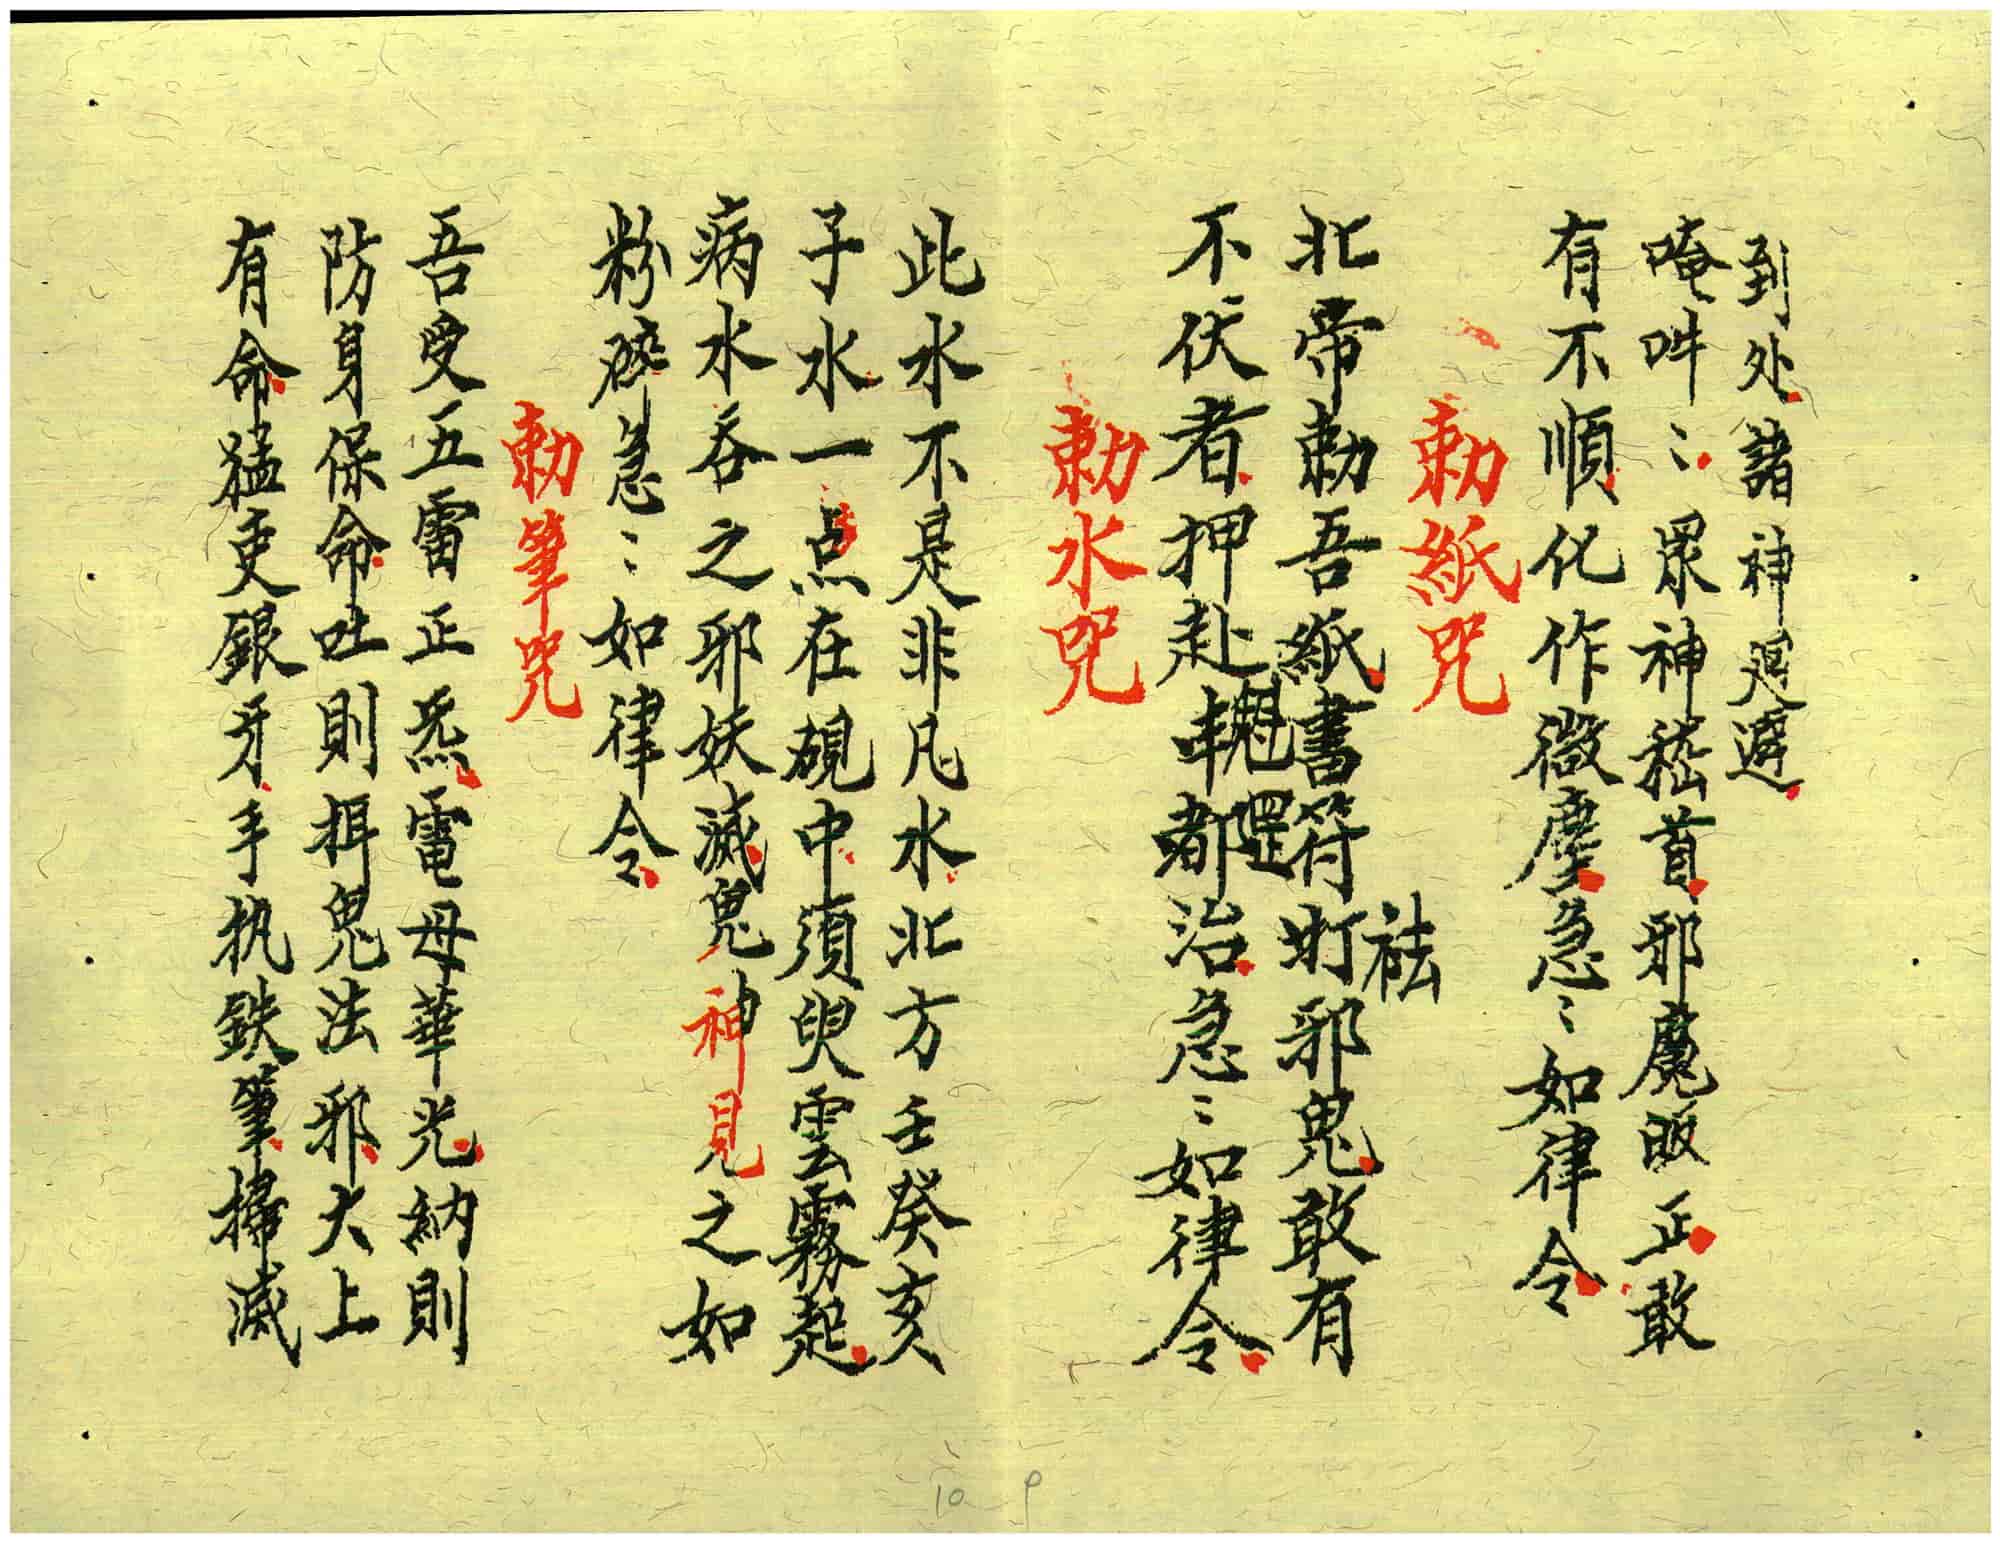 到处諸神迴避
唵吽〻眾神嵇首邪魔皈正敢
有不順化作微塵急〻如律令
勅紙咒
北帝勅吾紙書符打邪鬼敢有
祛
不伏者押赴酆都治急〻如律令
魁罡
勅水咒
此水不是非凡水北方壬癸亥
子水一点在硯中須臾雲霧起
病水吞之邪妖滅鬼神見之如
粉碎急〻如律令
勅筆咒
吾受五雷正炁電母華光納則
防身保命吐則揖鬼法邪大上
有命猛吏銀牙手执鉄筆掃滅
10 9